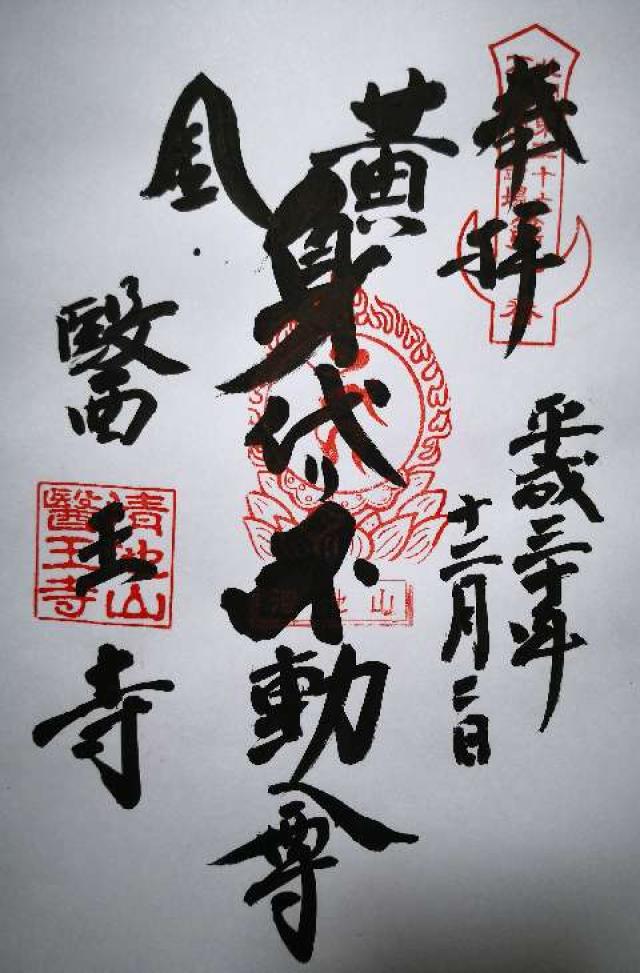 奉拝
平成三十年
十二月二日
黄金
身代り不動尊
醫王寺
清池山
醫王寺